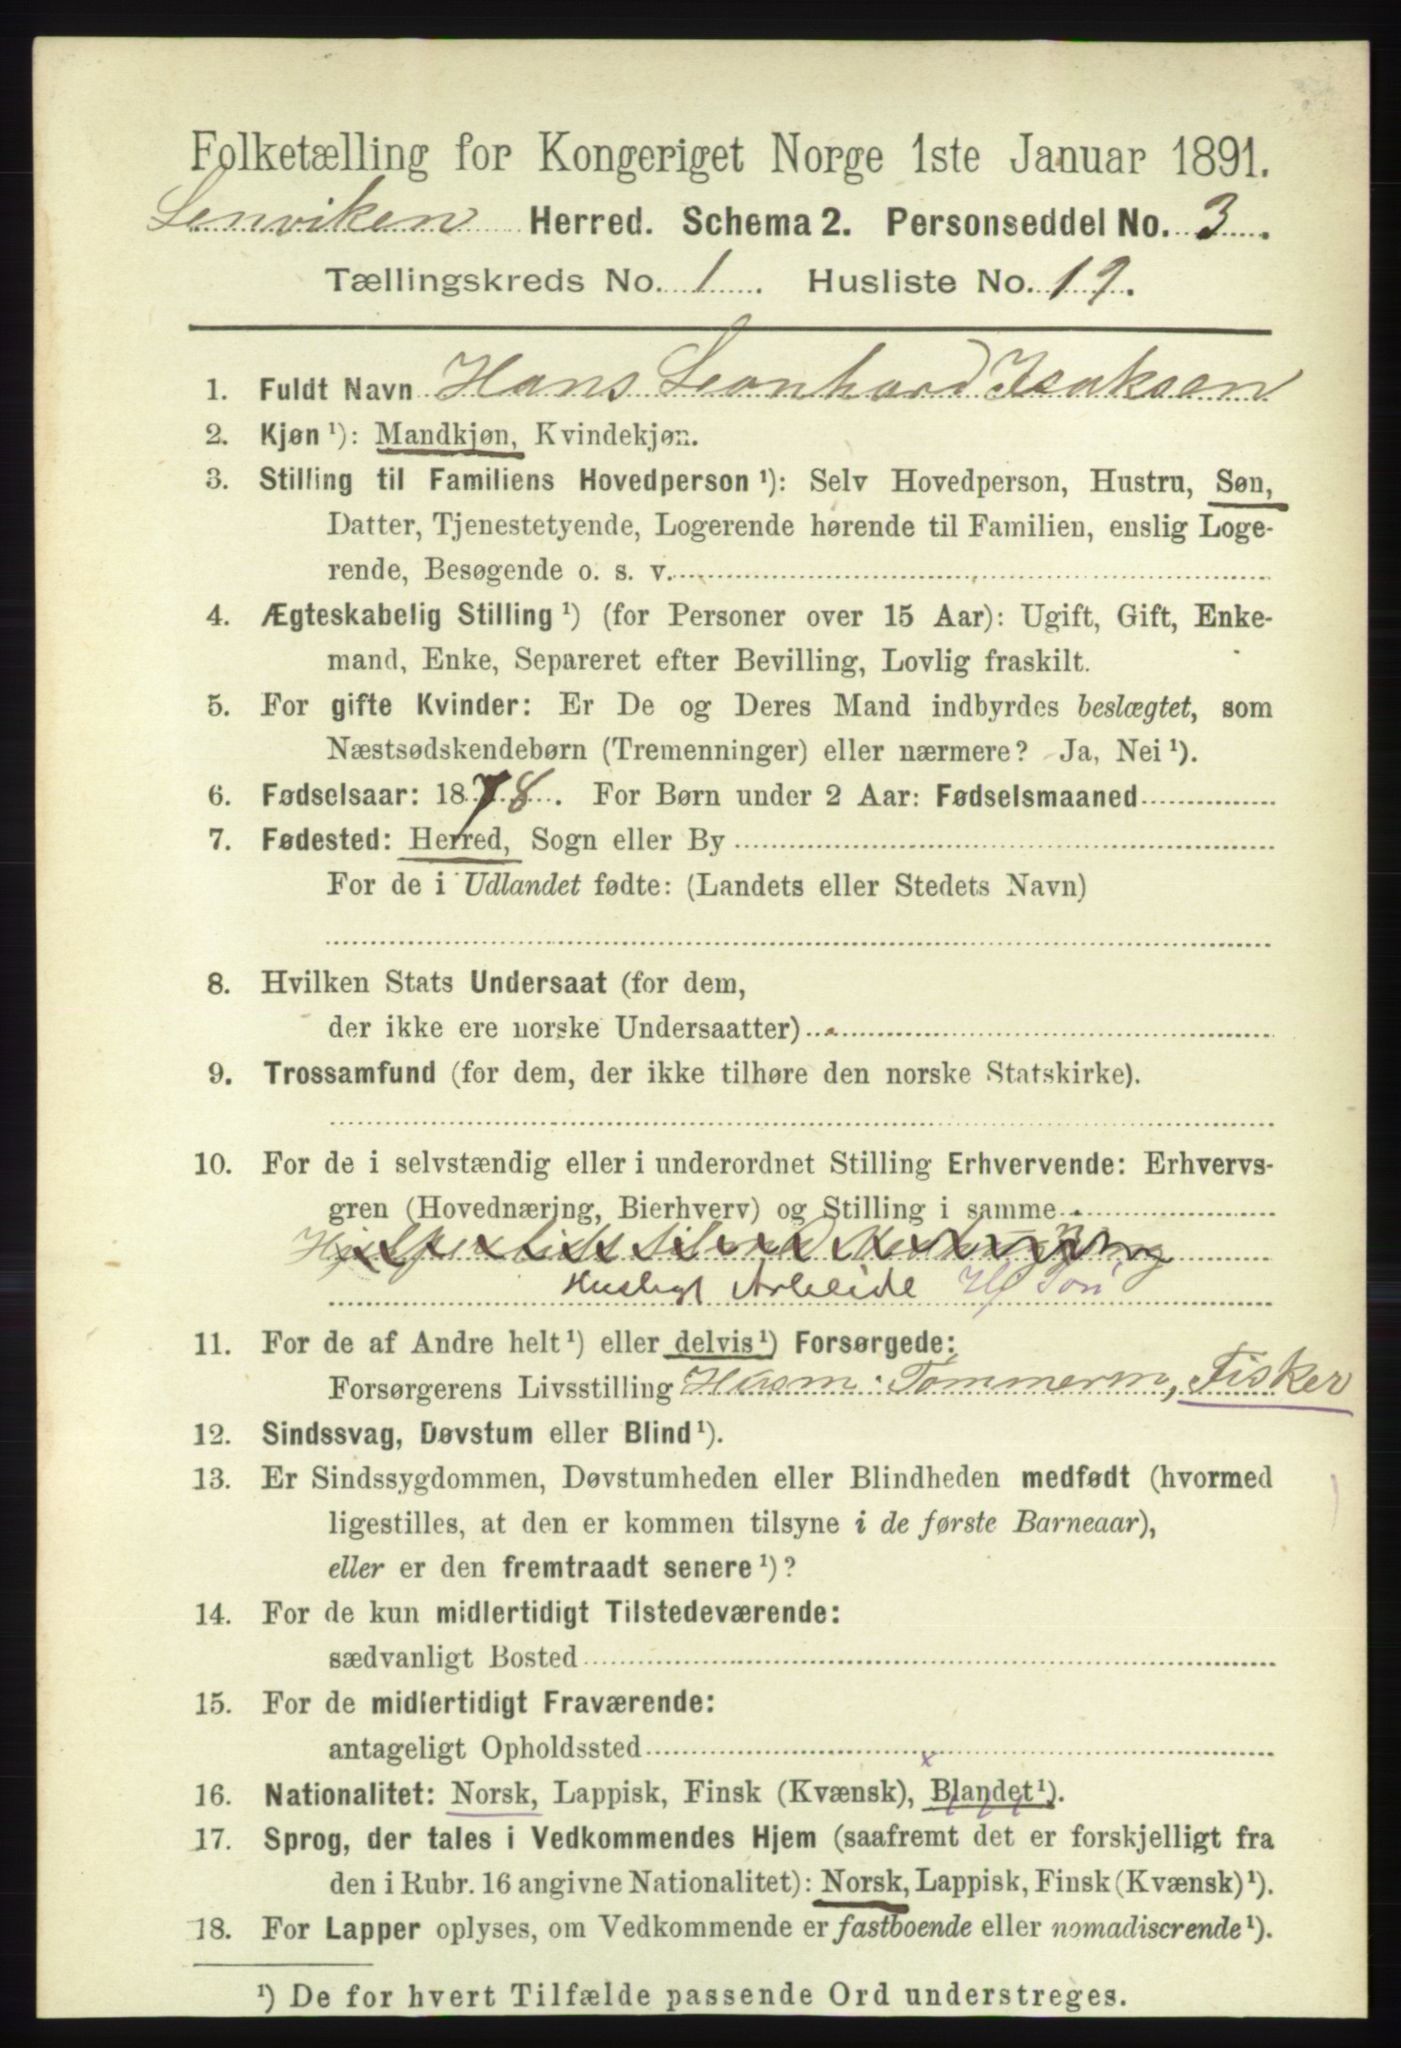 Folketælling for Kongeriget Norge 1ste Januar 1891.
Lenviken Herred. Schema 2. Personseddel No. 3.
Tællingskreds No. 1. Husliste No. 19.
1. Fuldt Navn Hans Leonhard Isaksen
2. Kjøn ¹): Mandkjøn, Kvindekjøn.
3. Stilling til Familiens Hovedperson ¹): Selv Hovedperson, Hustru, Søn,
Datter, Tjenestetyende, Logerende hørende til Familien, enslig Loge-
rende, Besøgende o. s. v.
4. Ægteskabelig Stilling ¹) (for Personer over 15 Aar): Ugift, Gift, Enke-
mand, Enke, Separeret efter Bevilling, Lovlig fraskilt.
5. For gifte Kvinder: Er De og Deres Mand indbyrdes beslægtet, som
Næstsødskendebørn (Tremenninger) eller nærmere? Ja, Nei ¹).
6. Fødselsaar: 1878. For Børn under 2 Aar: Fødselsmaaned
7. Fødested: Herred, Sogn eller By
For de i Udlandet fødte: (Landets eller Stedets Navn)
8. Hvilken Stats Undersaat (for dem,
der ikke ere norske Undersaatter)
9. Trossamfund (for dem, der ikke tilhøre den norske Statskirke).
10. For de i selvstændig eller i underordnet Stilling Erhvervende: Erhvervs-
gren (Hovednæring, Bierhverv) og Stilling i samme
Husligt Arbeide
11. For de af Andre helt ¹) eller delvis ¹) Forsørgede:
Forsørgerens Livsstilling Husm: Tømmerm, Fisker
12. Sindssvag, Døvstum eller Blind ¹).
13. Er Sindssygdommen, Døvstumheden eller Blindheden medfødt (hvormed
ligestilles, at den er kommen tilsyne i de første Barneaar),
eller er den fremtraadt senere ¹)?
14. For de kun midlertidigt Tilstedeværende:
sædvanligt Bosted
15. For de midlertidigt Fraværende:
antageligt Opholdssted
16. Nationalitet: Norsk, Lappisk, Finsk (Kvænsk), Blandet ¹).
17. Sprog, der tales i Vedkommendes Hjem (saafremt det er forskjelligt fra
den i Rubr. 16 angivne Nationalitet): Norsk, Lappisk, Finsk (Kvænsk) ¹).
18. For Lapper oplyses, om Vedkommende er fastboende eller nomadiserende ¹).
¹) De for hvert Tilfælde passende Ord understreges.